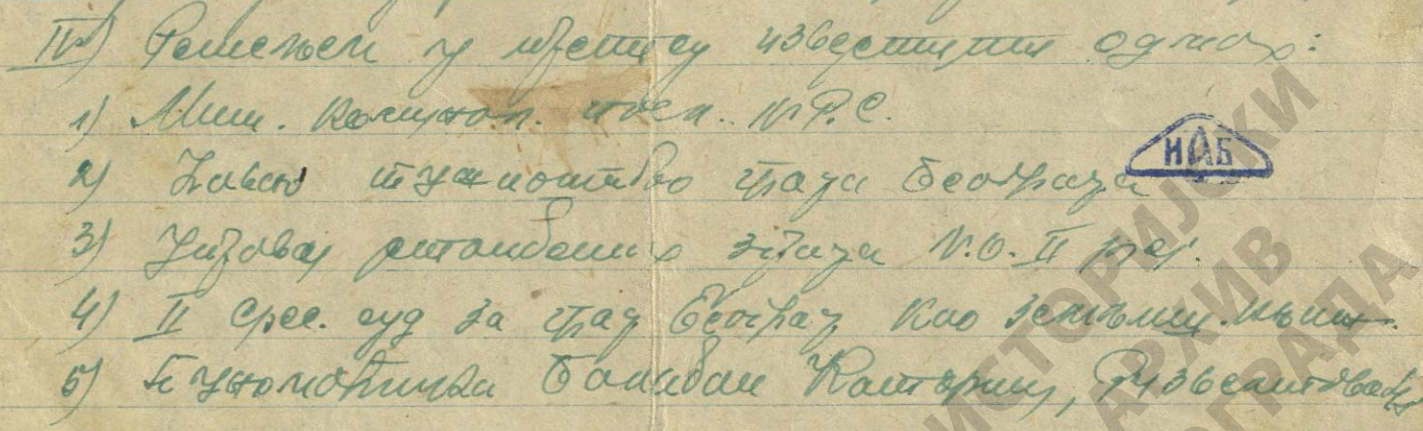 IV) Решењем у препису известити одмах:
1) Мин. комунал. посл. N.Р.С.
2) Јавно тужиоштво града Београда
3) Управу стамбених зграда N.О. II реј.
4) II срес. суд за град Београд као земљишн. књиж.
5) Пуномоћника Катарину,
НАБ
ИСТОРИЈСКИ
АРХИВ
БЕОГРАДА